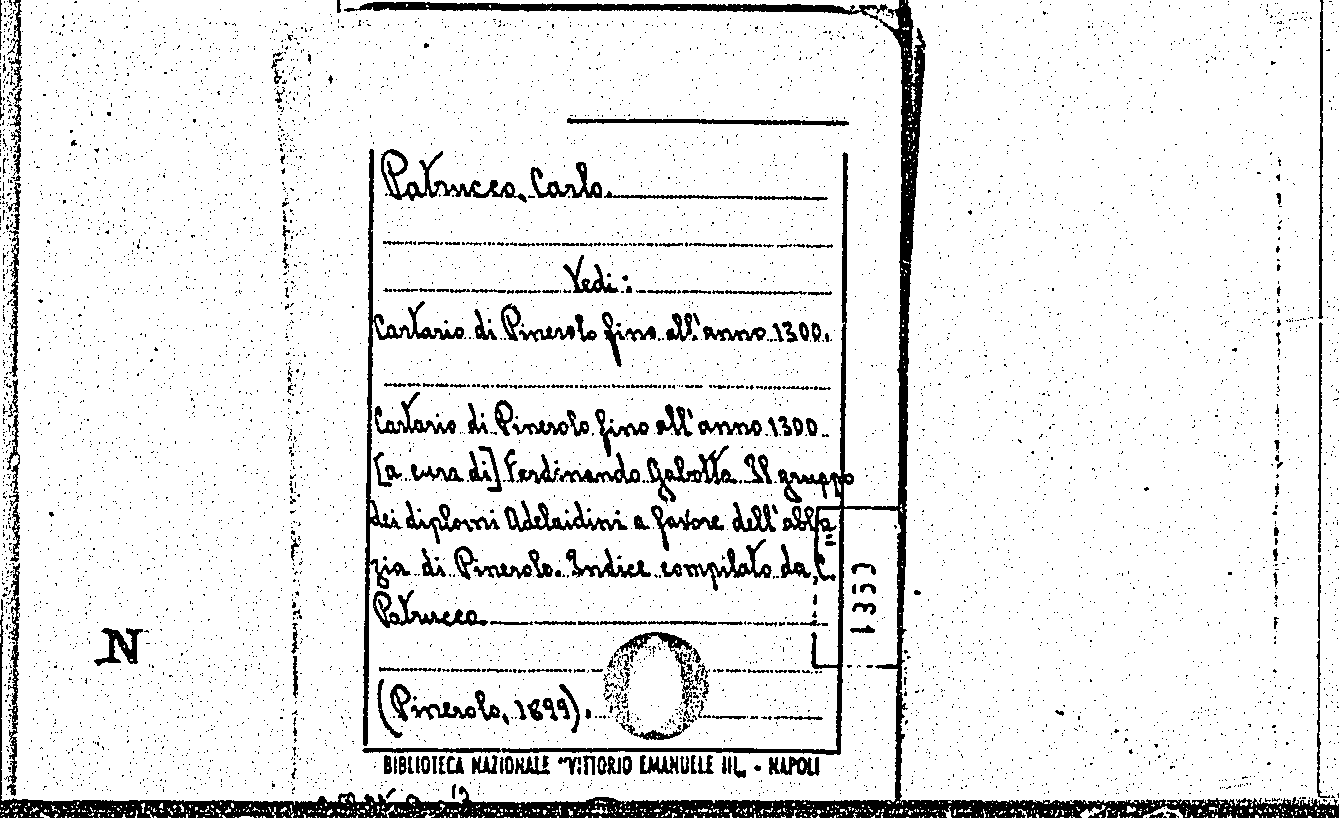 Patrucco, Carlo.
Vedi:
Cartario di Pinerolo fino all'anno 1300.
Cartario di Pinerolo fino all'anno 1300.
[a cura di] Ferdinando Gabotto. Il gruppo
dei diplomi Adelaidini a favore dell'abba
zia di Pinerolo. Indice compilato da C.
Patrucco
(Pinerolo, 1899).
BIBLIOTECA NAZIONALE "VITTORIO EMANUELE III„ - NAPOLI
1353
N